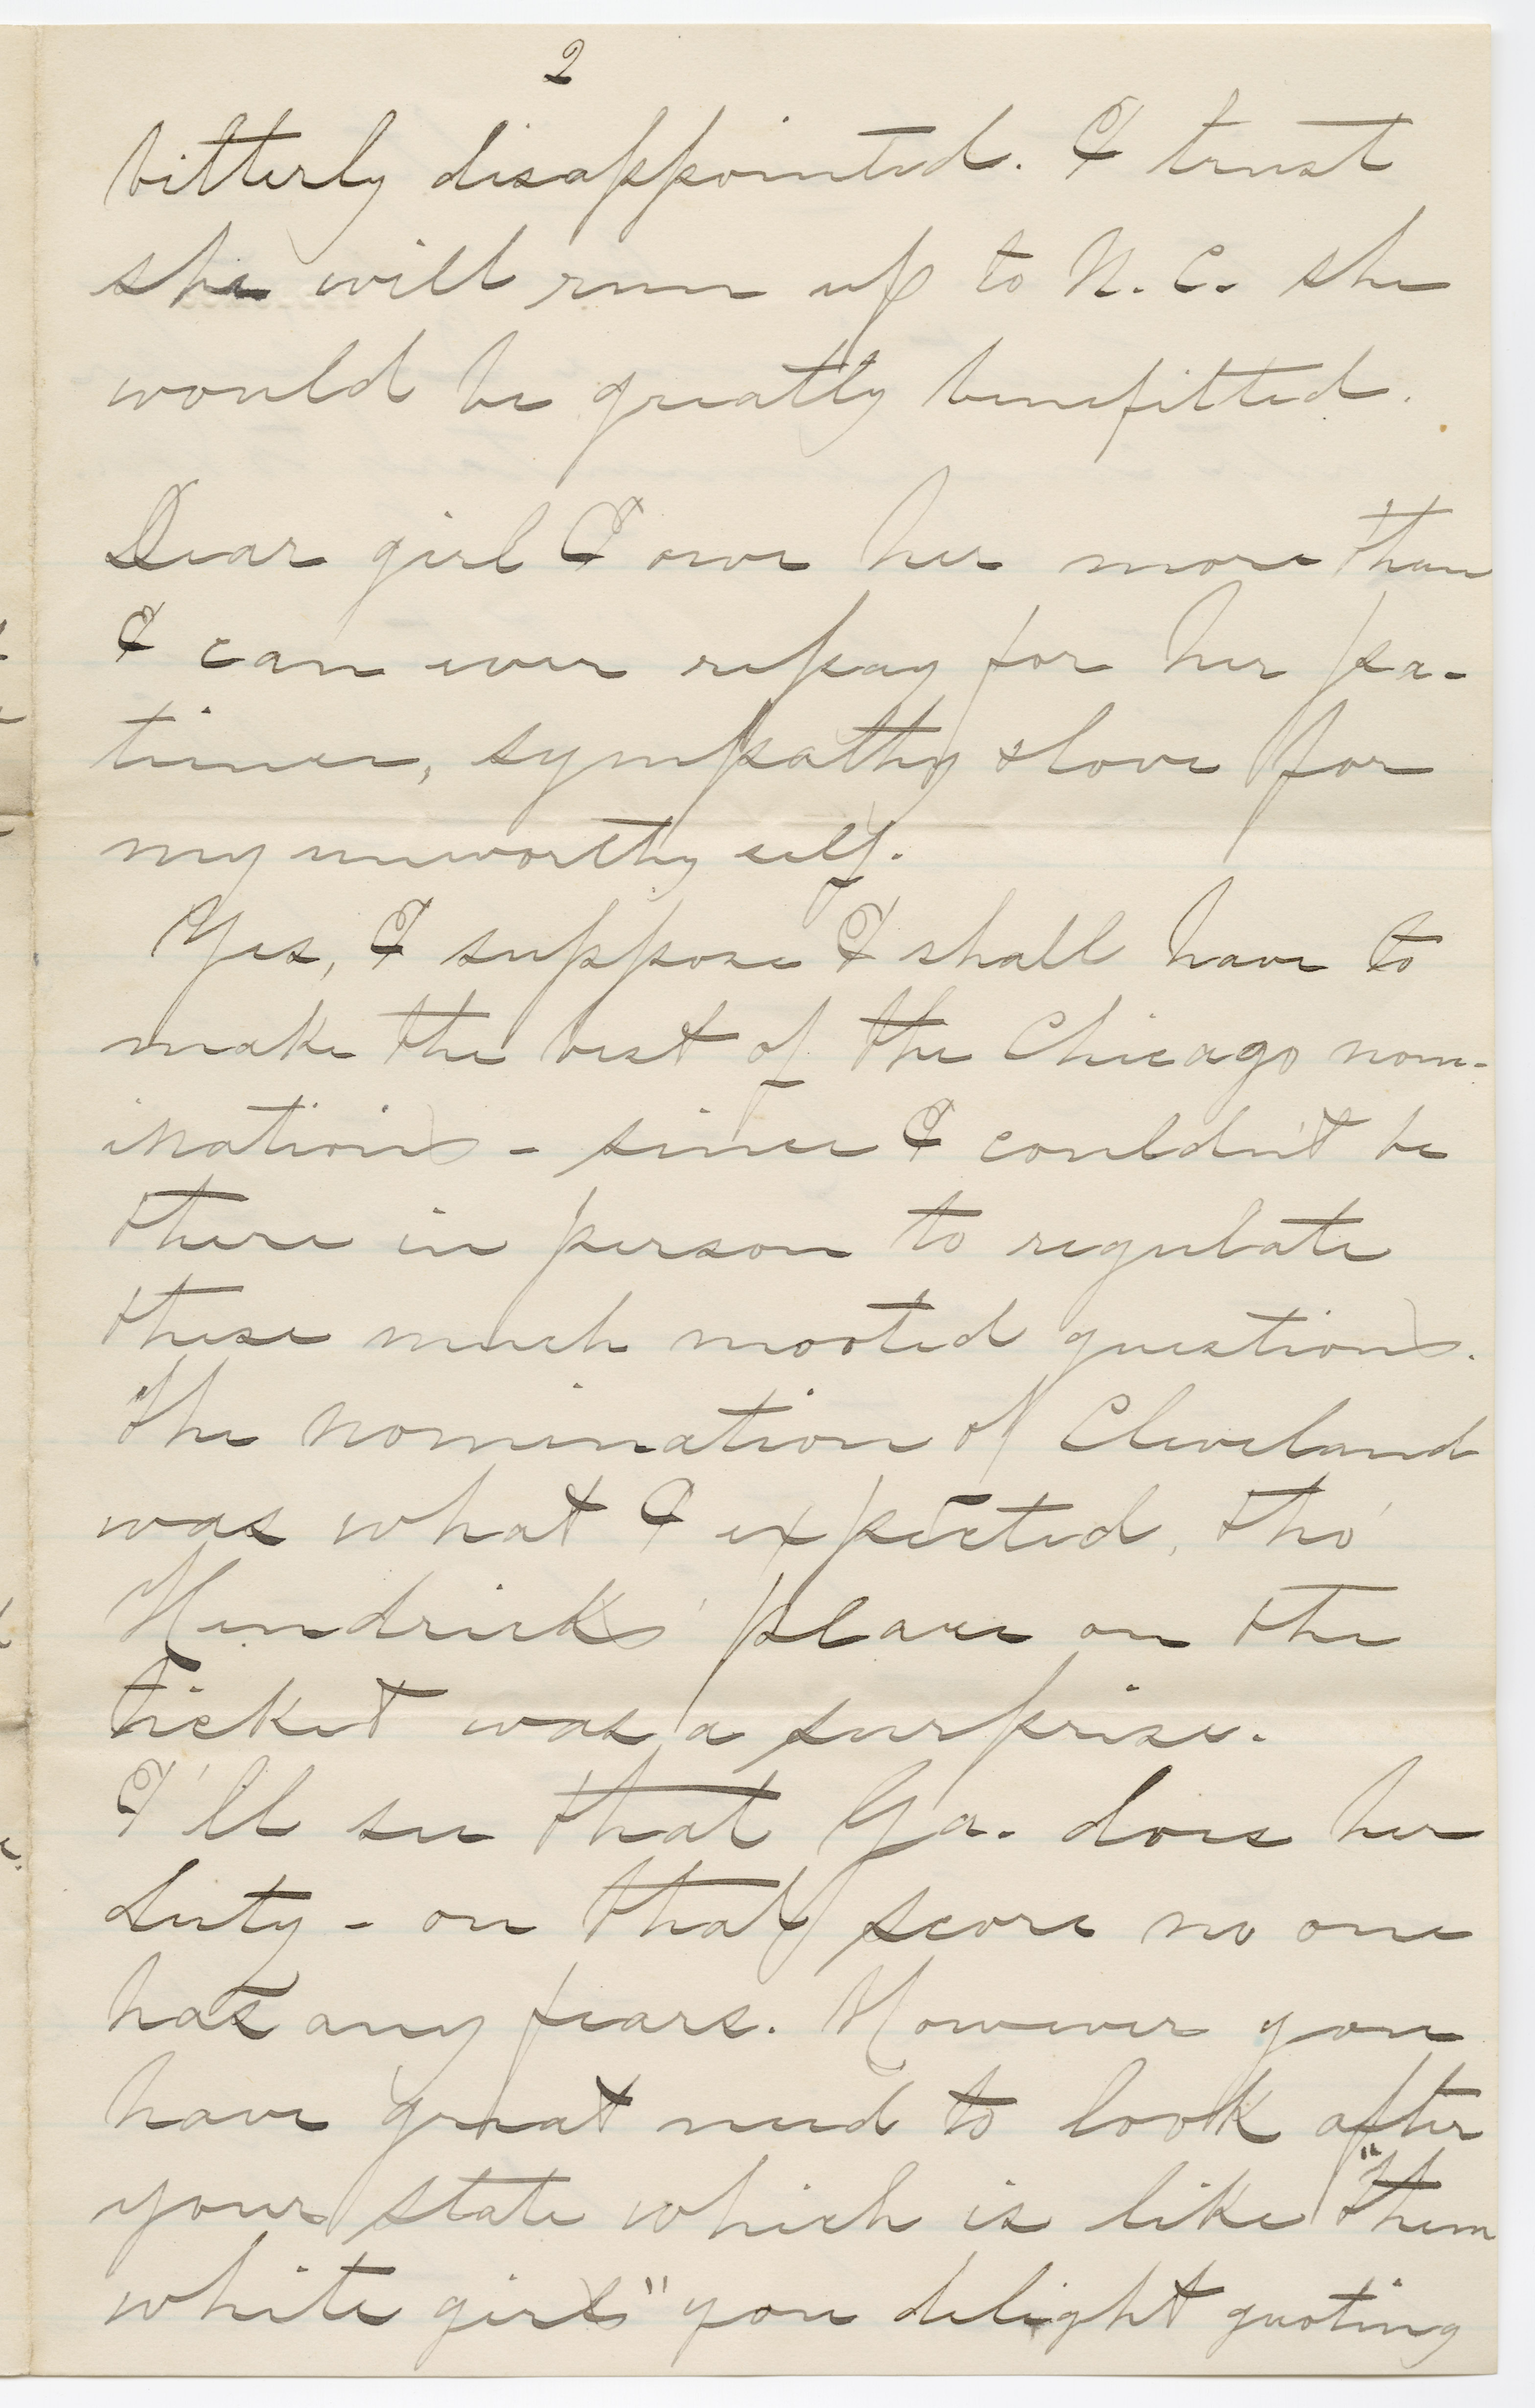 2
bitterly disappointed. I trust
she will run up to N. C. she
would be greatly benefitted.
Dear girl I owe her more than
I can ever repay for her pa-
tience, sympathy & love for
my unworthy self.
Yes, I suppose I shall have to
make the best of the Chicago nom-
inations - since I couldn't be
there in person to regulate
these much mooted questions.
The nomination of Cleveland
was what I expected, tho'
Hendricks' place on the
ticket was a surprise.
I'll see that Ga. does her
duty - on that score no one
has any fears. However you
have great need to look after
your state which is like "them
white girls" you delight quoting